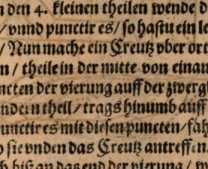 n den 4. kleinen theilen wende d
/ vnnd punctir es / so hastu ein le
/ Nun mache ein Creutz vber ort
n / theile in der mitte von einan
ncten der vierung auff der zwerg
nd dein theil / trags hinumb auff
unctir es mit disen puncten / fah
so sie vnden das Creutz antreffen.
h biß an das end der vierung / w